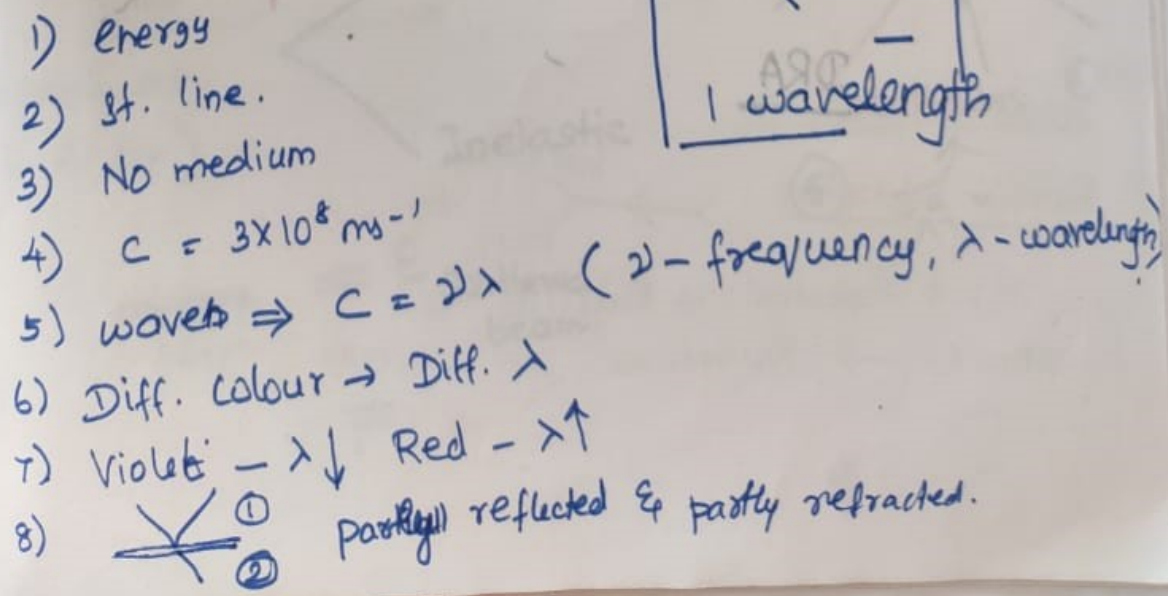 1) energy
2) st. line.
3) No medium
4) C = 3×10⁸ ms⁻¹
5) waves ⇒ C = νλ (ν - frequency, λ - wavelength)
6) Diff. Colour → Diff. λ
7) Violet - λ↓ Red - λ↑
8) ① ② partly reflected & partly refracted.
1 wavelength